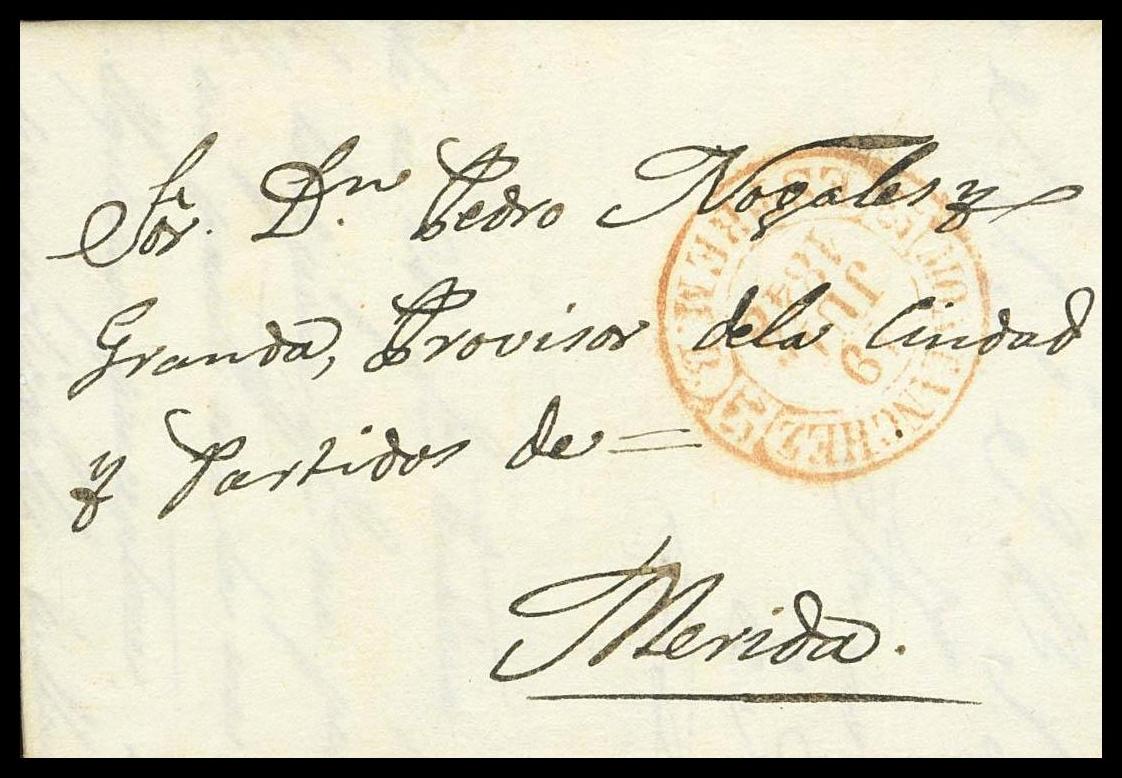 Sor. Dn. Pedro Nogales y
Granda, Provisor dela Ciudad
y Partidos de =
Merida.
19
JUL